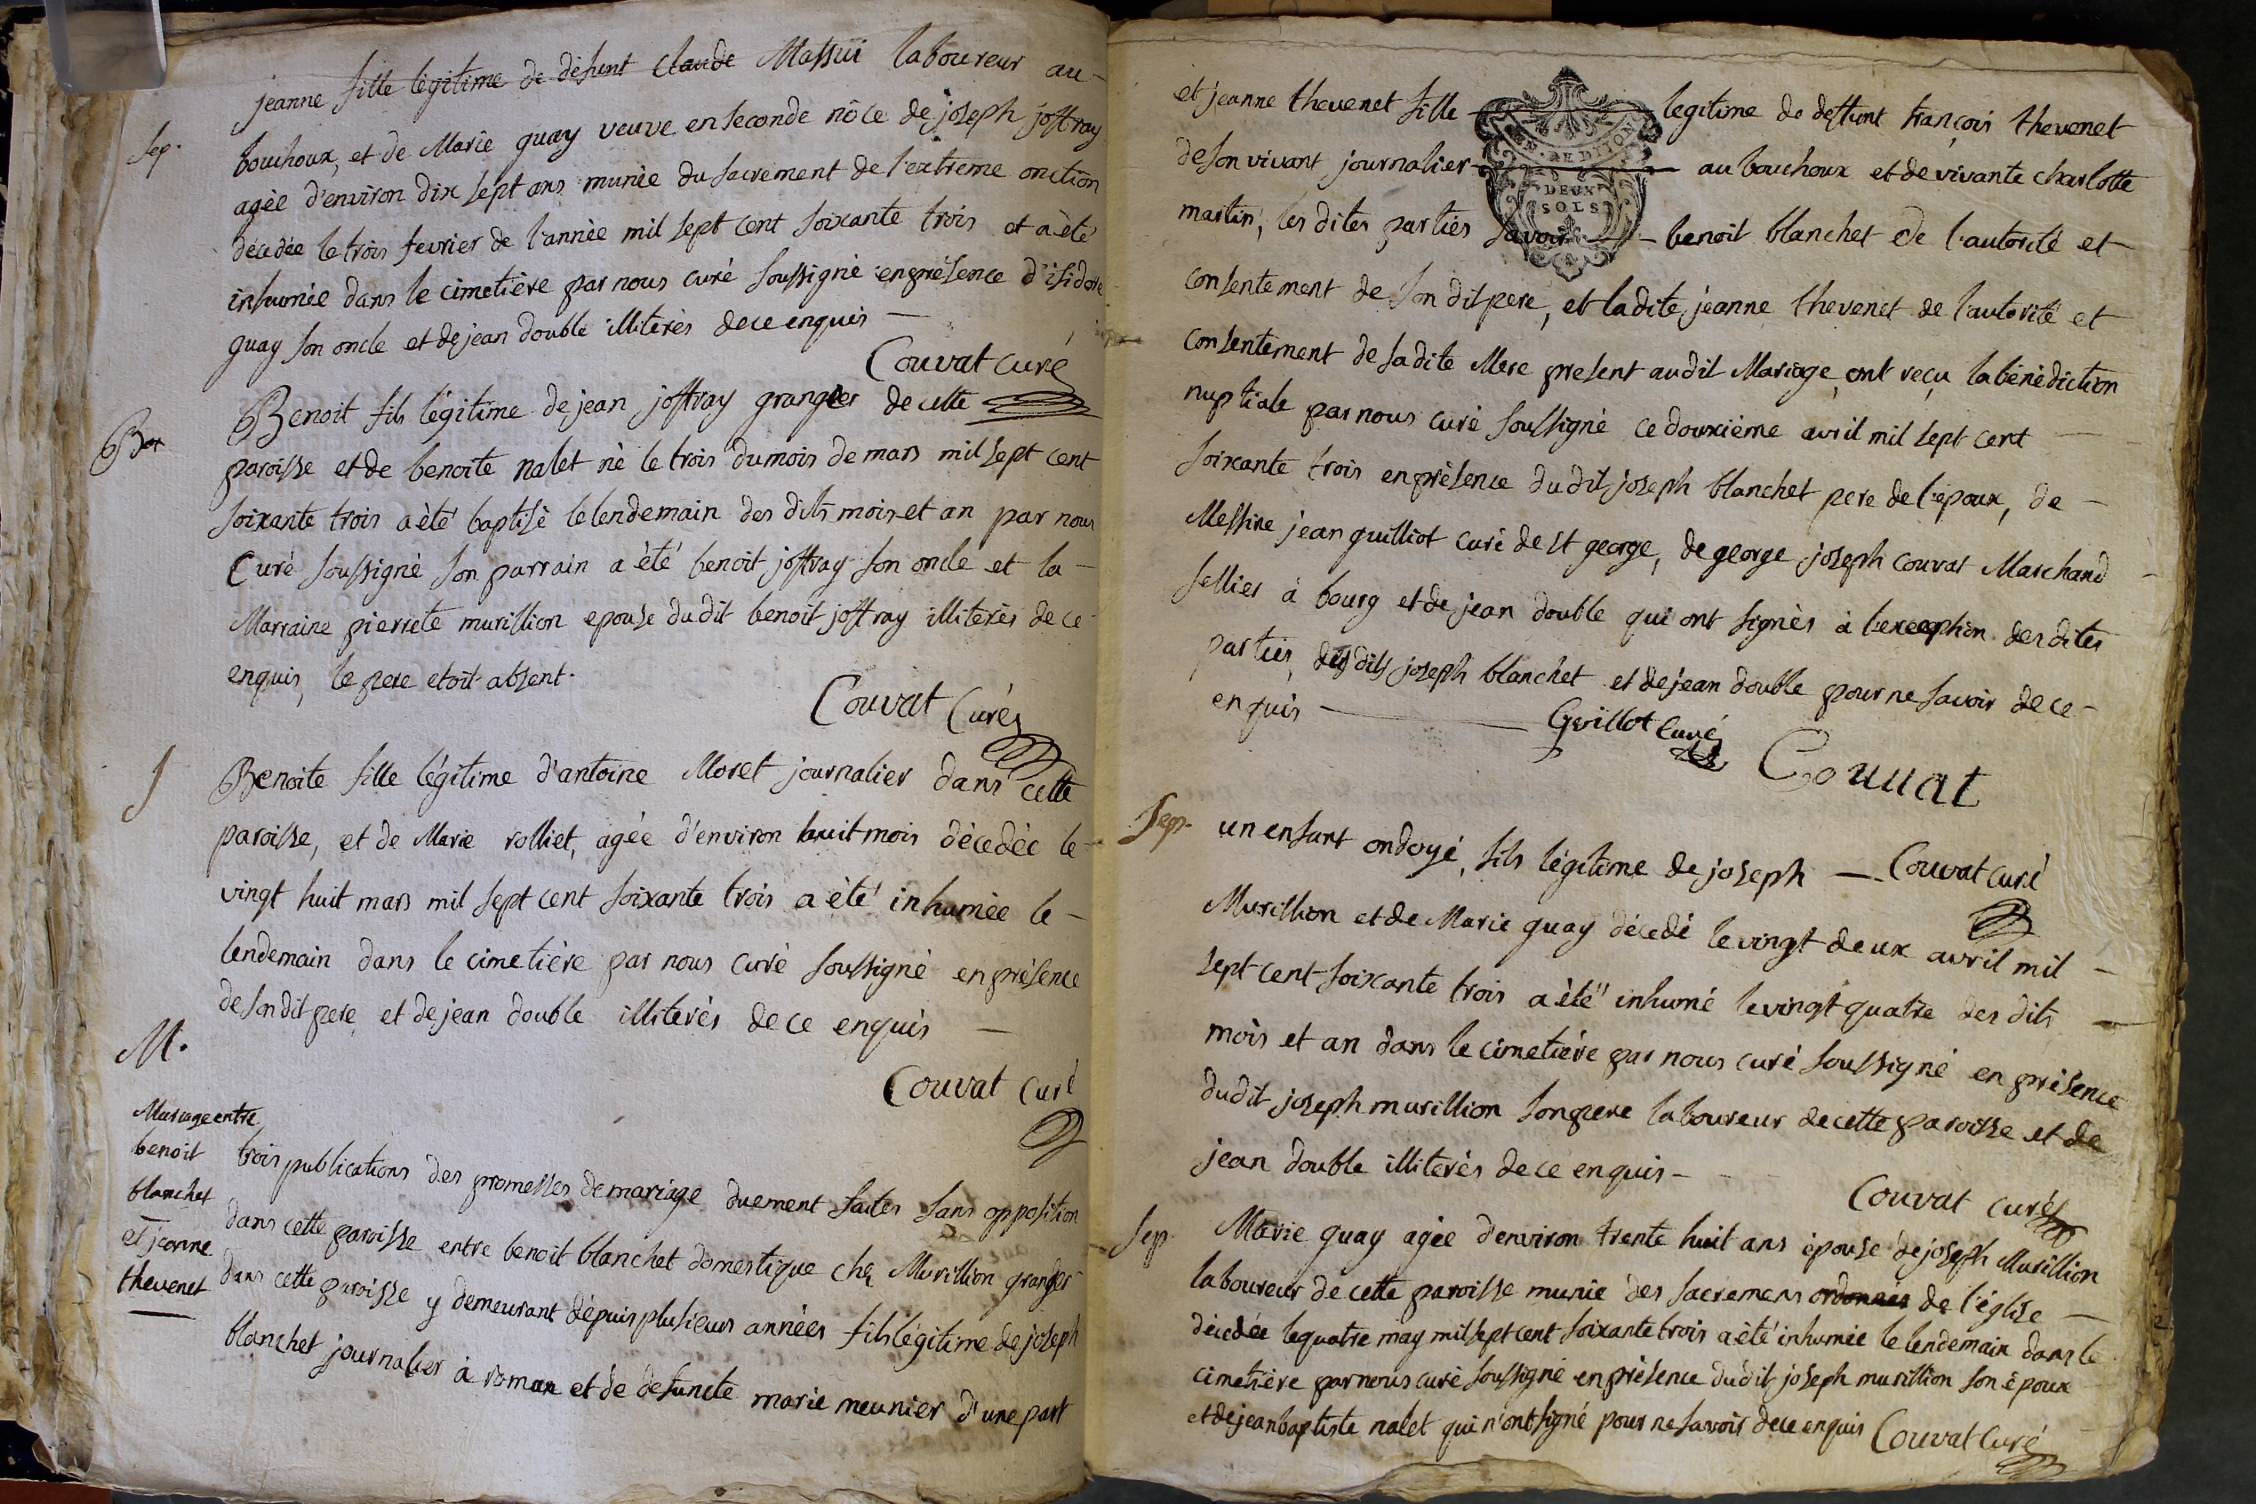 jeanne fille légitime de défunt claude Massui laboureur au-
Sep.
bouchoux, et de Marie guay veuve en seconde nôce de joseph joffray
agée d'environ dix sept ans munie du sacrement de l'extreme onction
décedée le trois fevrier de l'année mil sept cent soixante trois et a été
inhumée dans le cimetière par nous curé soussigné en présence d'isidore
guay son oncle et de jean double illiterés de ce enquis —
Couvat curé
Bap
Benoit fils légitime de jean joffray granger de cette
paroisse et de benoite nalet né le trois du mois de mars mil sept cent
soixante trois a été baptisé le lendemain des dits mois et an par nous
Curé soussigné son parrain a été benoit joffray son oncle et la -
Marraine pierrete murillion epouse dudit benoit joffray illiterés de ce
enquis, le pere etoit absent.
Couvat Curé
S
Benoite fille légitime d'antoine Moret journalier dans cette
paroisse, et de Marie rolliet, agée d'environ huit mois décedée le -
vingt huit mars mil sept cent soixante trois a été inhumée le -
lendemain dans le cimetière par nous curé soussigné en présence
de son dit pere, et de jean double illiterés de ce enquis —
M.
Couvat Curé
Mariage entre
benoit
blanchet
et jeanne
thevenet
trois publications des promesses de mariage duement faites sans opposition
dans cette paroisse entre benoit blanchet domestique ché Murillion granger
dans cette paroisse y demeurant dépuis plusieurs années fils légitime de joseph
blanchet journalier à roman et de defuncte marie meunier d'une part
et jeanne thevenet fille — legitime de deffunt françois thevenet
de son vivant journalier — au bouchoux et de vivante charlotte
DEUX
SOLS
martin, les dites parties savoir — benoit blanchet de l'autorité et
consentement de son dit pere, et ladite jeanne thevenet de l'autorité et
consentement de sadite Mere present audit Mariage, ont reçu la bénédiction
nuptiale par nous curé soussigné ce douxiéme avril mil sept cent —
soixante trois en présence dudit joseph blanchet pere de l'epoux, de -
Messire jean guilliot curé de st george, de george joseph couvat Marchand
sellier à bourg et de jean double qui ont signés à l'exception des dites
parties, des dits joseph blanchet et de jean double pour ne savoir de ce -
enquis — Guillot curé
Couuat
Sep.
un enfant ondoyé, fils légitime de joseph — Couvat curé
Murillion et de Marie guay décedé le vingt deux avril mil -
sept cent soixante trois a été inhumé le vingt quatre des dits —
mois et an dans le cimetiére par nous curé soussigné en présence
dudit joseph murillion son pere laboureur de cette paroisse et de
jean double illiterés de ce enquis -
Couvat curé
Sep.
Marie guay agée d'environ trente huit ans épouse de joseph Murillion
laboureur de cette paroisse munie des sacremens ordonnés de l'église —
décedée le quatre may mil sept cent soixante trois a été inhumée le lendemain dans le
cimetière par nous curé soussigné en présence dudit joseph murillion son époux
et de jean baptiste nalet qui n'ont signé pour ne savoir de ce enquis Couvat Curé